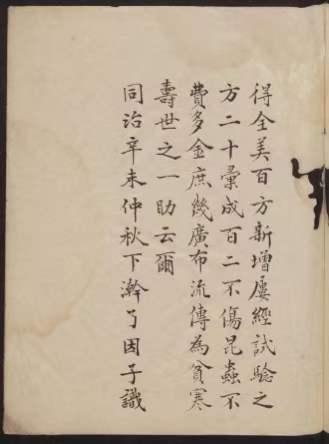 得全美百方新增屢經試驗之
方二十彙成百二不傷昆蟲不
費多金庶幾廣布流傳為貧寒
壽世之一助云爾
同治辛未仲秋下澣了因子識